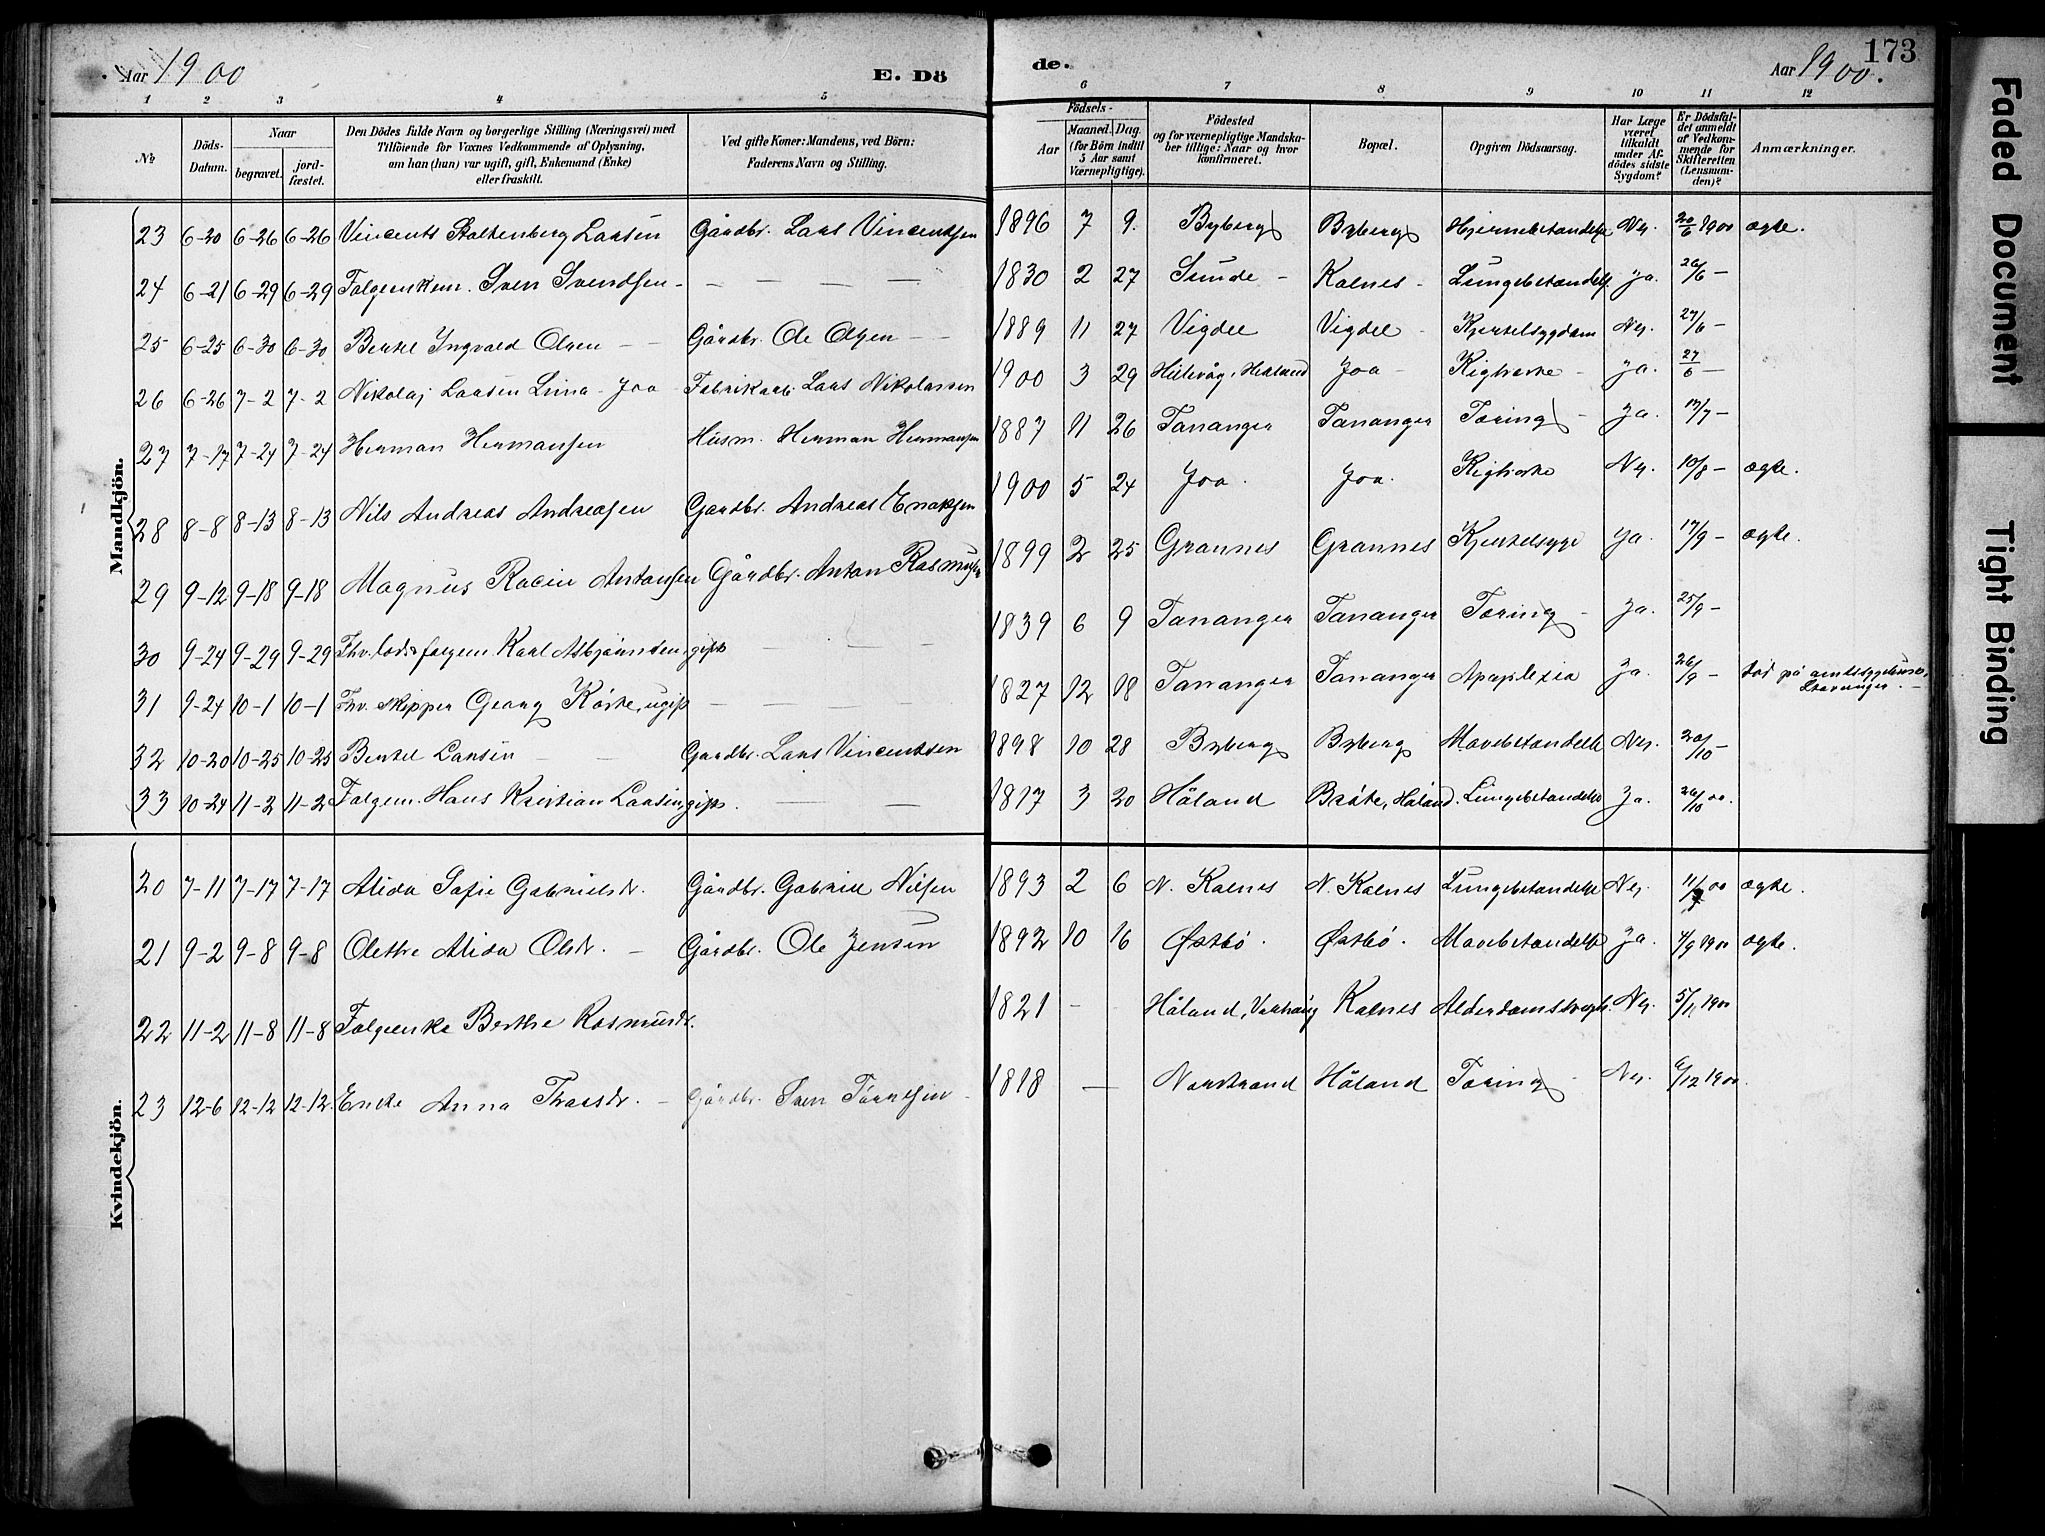 Aar 1900 E. Dö
de. Aar 1900. 173
1 2 3 4 5 6 7 8 9 10 11 12
№
Döds-Datum.
Naar
begravet.
jord-fæstet.
Den Dödes fulde Navn og borgerlige Stilling (Næringsvei) med
Tilföiende for Voxnes Vedkommende af Oplysning,
om han (hun) var ugift, gift, Enkemand (Enke)
eller fraskilt.
Ved gifte Koner: Mandens, ved Börn:
Faderens Navn og Stilling.
Födsels-
Aar
Maaned. Dag.
(for Börn indtil
5 Aar samt
Værnepligtige).
Födested
og for værnepligtige Mandska-
ber tillige: Naar og hvor
konfirmeret.
Bopæl.
Opgiven Dödsaarsag.
Har Læge
været
tilkaldt
under Af-
dödes sidste
Sygdom?
Er Dödsfal-
det anmeldt
af Vedkom-
mende for
Skifteretten
(Lensman-
den)?
Anmærkninger.
Mandkjön.
23 6-20 6-26 6-26 Vincents Stoltenberg Larsen Gårdbr. Lars Vincentsen 1896 7 9. Byberg Byberg Hjernebetændelse Nej. 20/6 1900 ægte.
24 6-21 6-29 6-29 Folgeenkem. Sven Svendsen - — — — — 1830 2 27 Sunde - Kolnes - Lungebetændelse ja. 26/6 —
25 6-25 6-30 6-30 Bertel Ingvald Olsen - - Gårdbr. Ole Olsen - - 1889 11 27 Vigdel Vigdel - Kjertelsygdom Nej. 27/6 —
26 6-26 7-2 7-2 Nikolaj Larsen Lima - Joa - Fabrikarb. Lars Nikolaisen 1900 3 29 Hillevåg, Hetland Joa - Kighoste - ja. 27/6 —
27 7-17 7-24 7-24 Herman Hermansen Husm. Herman Hermansen 1887 11 26 Tananger Tananger Tæring - Ja. 17/7 —
28 8-8 8-13 8-13 Nils Andreas Andreasen Gårdbr. Andreas Enoksen 1900 5 24 Joa. Joa. Kighoste Nej. 10/8 — ægte.
29 9-12 9-18 9-18 Magnus Antonsen Gårdbr. Anton Rasmussen 1899 2 25 Grannes Grannes Kjertelsyge ja. 17/9 — ægte.
30 9-24 9-29 9-29 Fhv. lods folgem. Karl Asbjørnsen, gift — — — 1839 6 9 Tananger Tananger Tæring - Ja. 25/9 —
31 9-24 10-1 10-1 Fhv. skipper Georg Körke, ugift — — — — 1827 12 18 Tananger Tananger Apoplexia Ja. 26/9 — död på amtssygehuset, Stavanger. —
32 10-20 10-25 10-25 Bertel Larsen — — Gardbr. Lars Vincentsen 1898 10 28 Byberg Byberg Mavebetændelse Nej. 20/10 —
33 10-24 11-2 11-2 Folgem. Hans Kristian Larsen, gift. — — 1817 3 20 Håland Bråte, Håland. Lungebetændelse Ja. 26/10 00.
Kvindekjön.
20 7-11 7-17 7-17 Alida Sofie Gabrielsdr. Gårdbr. Gabriel Nilsen 1893 2 6 N. Kolnes N. Kolnes Lungebetændelse Nej. 11/7 00 ægte.
21 9-2 9-8 9-8 Olethe Alida Olsdr. — Gårdbr. Ole Jensen 1892 10 16 Østbö. Østbö. Mavebetændelse Ja. 4/9 1900 ægte.
22 11-2 11-8 11-8 Folgeenke Berthe Rasmusdr. 1821 — Håland, Varhaug Kolnes Alderdomssvagh. Nej. 5/11 1900
23 12-6 12-12 12-12 Enke Anna Thorsdr. — Gårdbr. Sven Tørresen - 1818 — Narstrand Håland Tæring - Nej. 6/12 1900.
Faded Document
Tight Binding